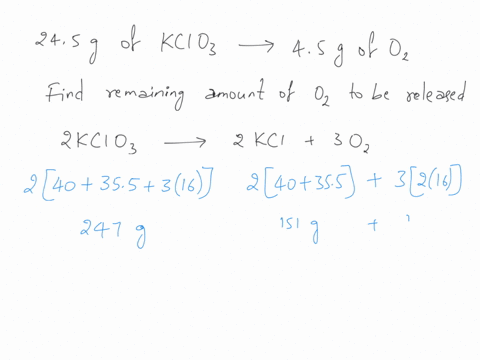 24.5 g of KClO3 → 4.5 g of O2
Find remaining amount of O2 to be released
2KClO3 → 2KCl + 3O2
2[40+35.5+3(16)] 2[40+35.5] + 3[2(16)]
247 g 151 g +